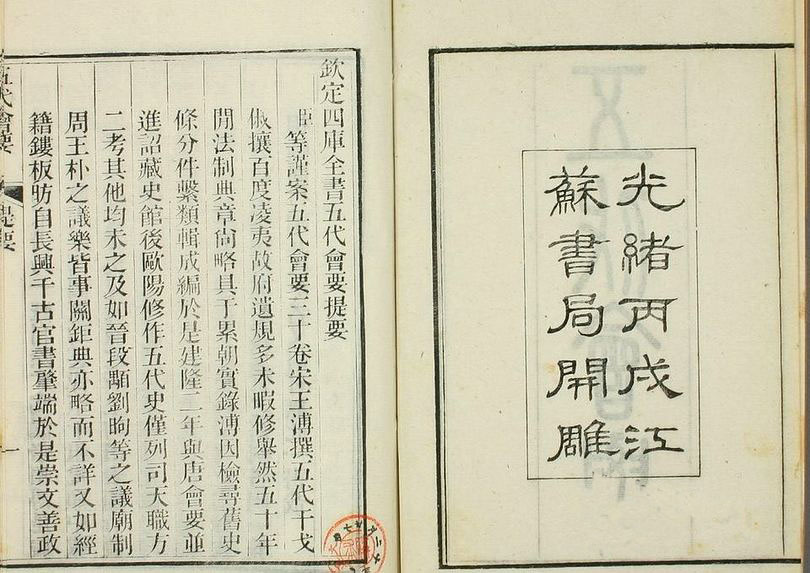 光緒丙戌江
蘇書局開雕
欽定四庫全書五代會要提要
臣等謹案五代會要三十卷宋王溥撰五代干戈
俶攘百度凌夷故府遺規多未暇修舉然五十年
閒法制典章尙略具于累朝實錄溥因檢尋舊史
條分件繫類輯成編於是建隆二年與唐會要並
進詔藏史館後歐陽修作五代史僅列司天職方
二考其他均未之及如晉段顒劉昫等之議廟制
周王朴之議樂皆事關鉅典亦略而不詳又如經
籍鏤板昉自長興千古官書肇端於是崇文善政
五代會要 提要 一